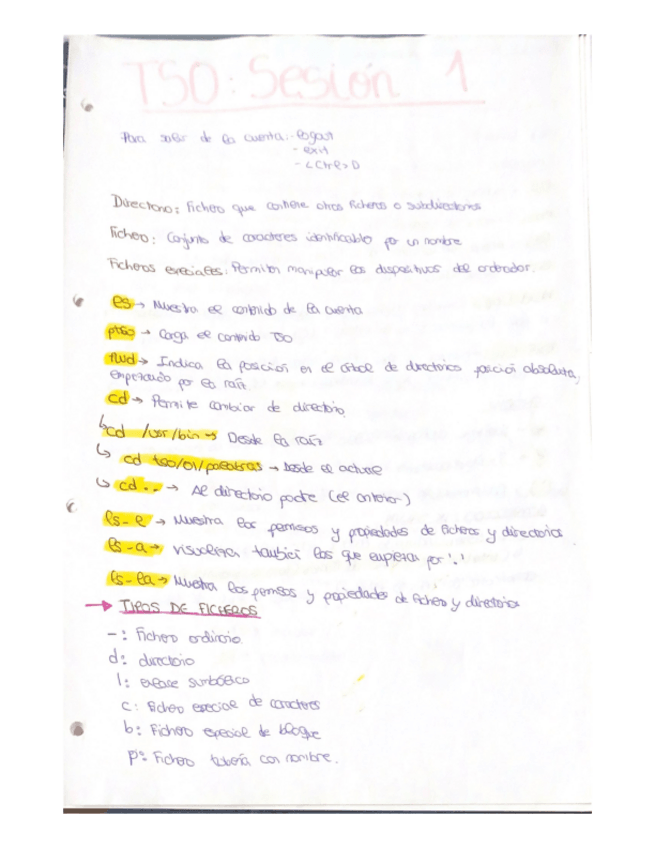 TSO: Sesión 1
Para salir de la cuenta: - logout
- exit
- <Ctrl> D
Directorio: Fichero que contiene otros ficheros o subdirectorios
Fichero: Conjunto de caracteres identificables por un nombre
Ficheros especiales: Permiten manipular los dispositivos del ordenador.
ls → Muestra el contenido de la cuenta
ptso → Carga el contenido TSO
→ Indica la posición en el árbol de directorios posición absoluta,
empezando por la raíz
cd → Permite cambiar de directorio
↳ cd /usr/bin → Desde la raíz
↳ cd tso/01/palabras → Desde el actual
↳ cd .. → Al directorio padre (el anterior)
ls -l → Muestra los permisos y propiedades de ficheros y directorios
ls -a → visualiza también los que empiezan por '.'
ls -la → Muestra los permisos y propiedades de fichero y directorios
→ TIPOS DE FICHEROS
- : Fichero ordinario
d: directorio
l: enlace simbólico
c: Fichero especial de caracteres
b: Fichero especial de bloque
p: Fichero tubería con nombre.